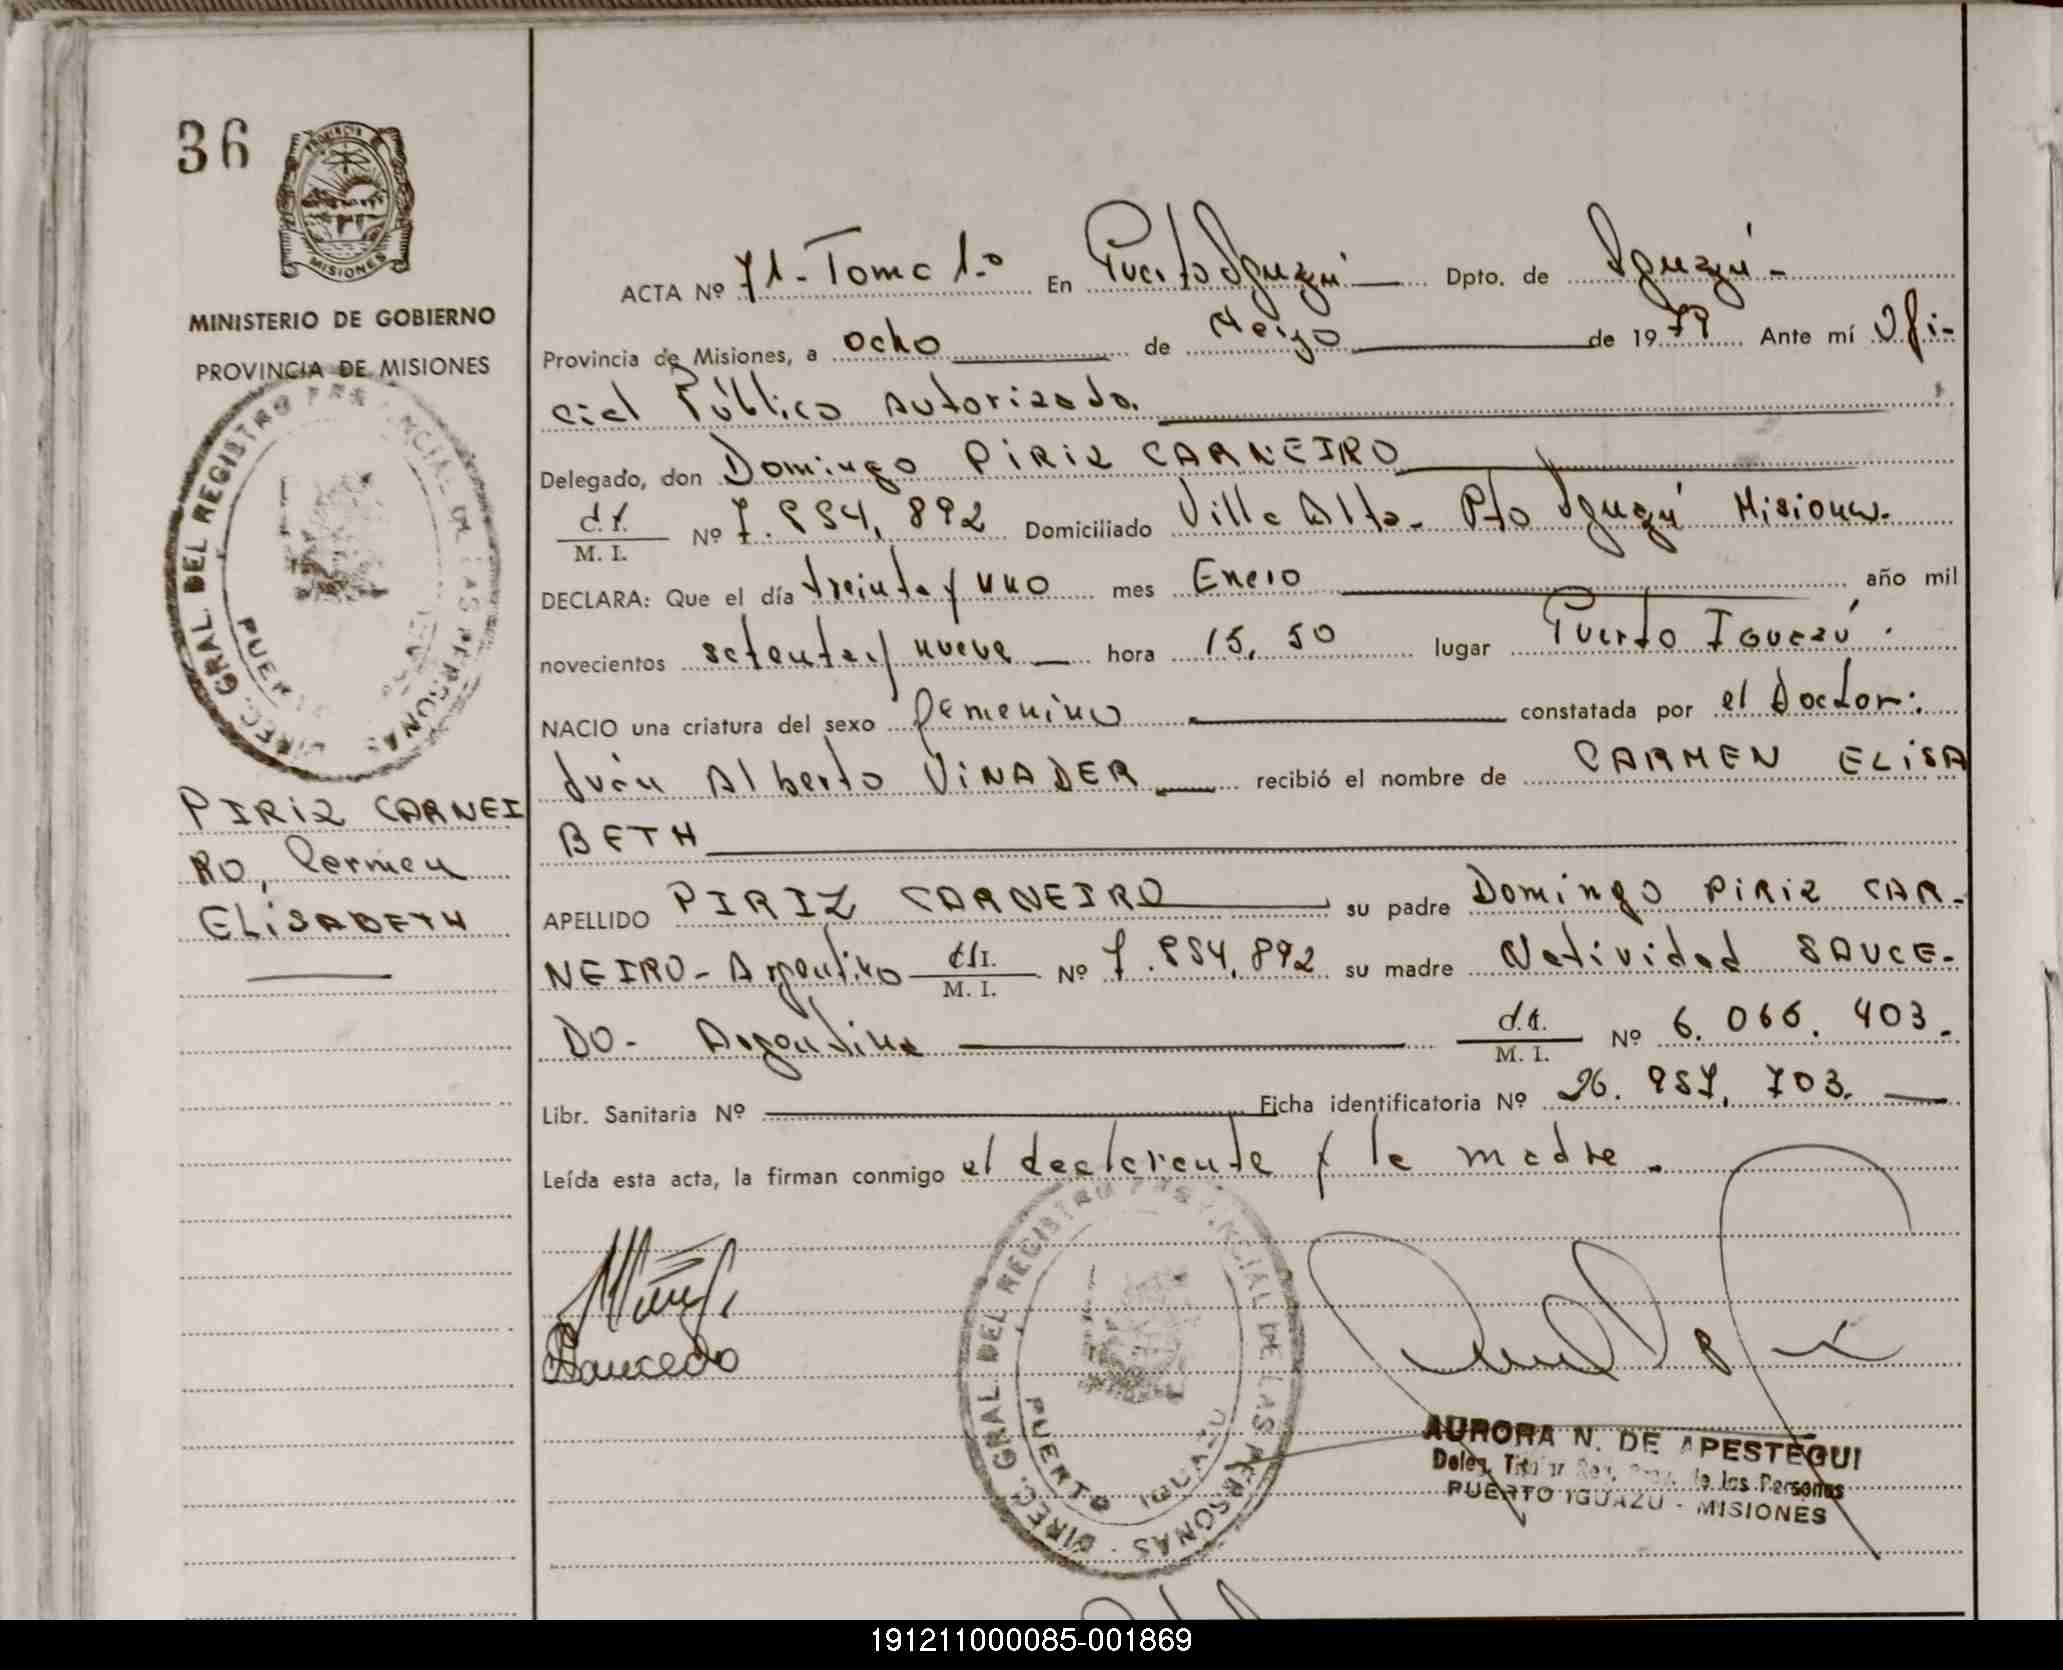 36
PROVINCIA
MISIONES
MINISTERIO DE GOBIERNO
PROVINCIA DE MISIONES
DIREC. GRAL. DEL REGISTRO PROVINCIAL DE LAS PERSONAS
PIRIZ CARNEI
RO, Carmen
ELISABETH
ACTA Nº 71 - Tomo 1º En Puerto Iguazú Dpto. de Iguazú -
Provincia de Misiones, a ocho de Mayo de 1979 Ante mí Ofi-
cial Público Autorizado.
Delegado, don Domingo PIRIZ CARNEIRO
d.i. M. I. Nº 7.884.892 Domiciliado Villa Alta - Pto Iguazú Misiones.
DECLARA: Que el día treinta y uno mes Enero año mil
novecientos setenta y nueve hora 15,50 lugar Puerto Iguazú.
NACIO una criatura del sexo femenino constatada por el Doctor:
Iván Alberto VINADER recibió el nombre de CARMEN ELISA
BETH
APELLIDO PIRIZ CARNEIRO su padre Domingo PIRIZ CAR-
NEIRO - Argentino d.i. M. I. Nº 7.884.892 su madre Natividad SAUCE-
DO - Argentina d.i. M. I. Nº 6.066.403.
Libr. Sanitaria Nº Ficha identificatoria Nº 26.957.703.
Leída esta acta, la firman conmigo el declarante y la madre.
Saucedo
DIREC. GRAL. DEL REGISTRO PROVINCIAL DE LAS PERSONAS
PUERTO IGUAZU
AURORA N. DE APESTEGUI
Deleg. Titular Reg. Prov. de las Personas
PUERTO IGUAZU - MISIONES
191211000085-001869